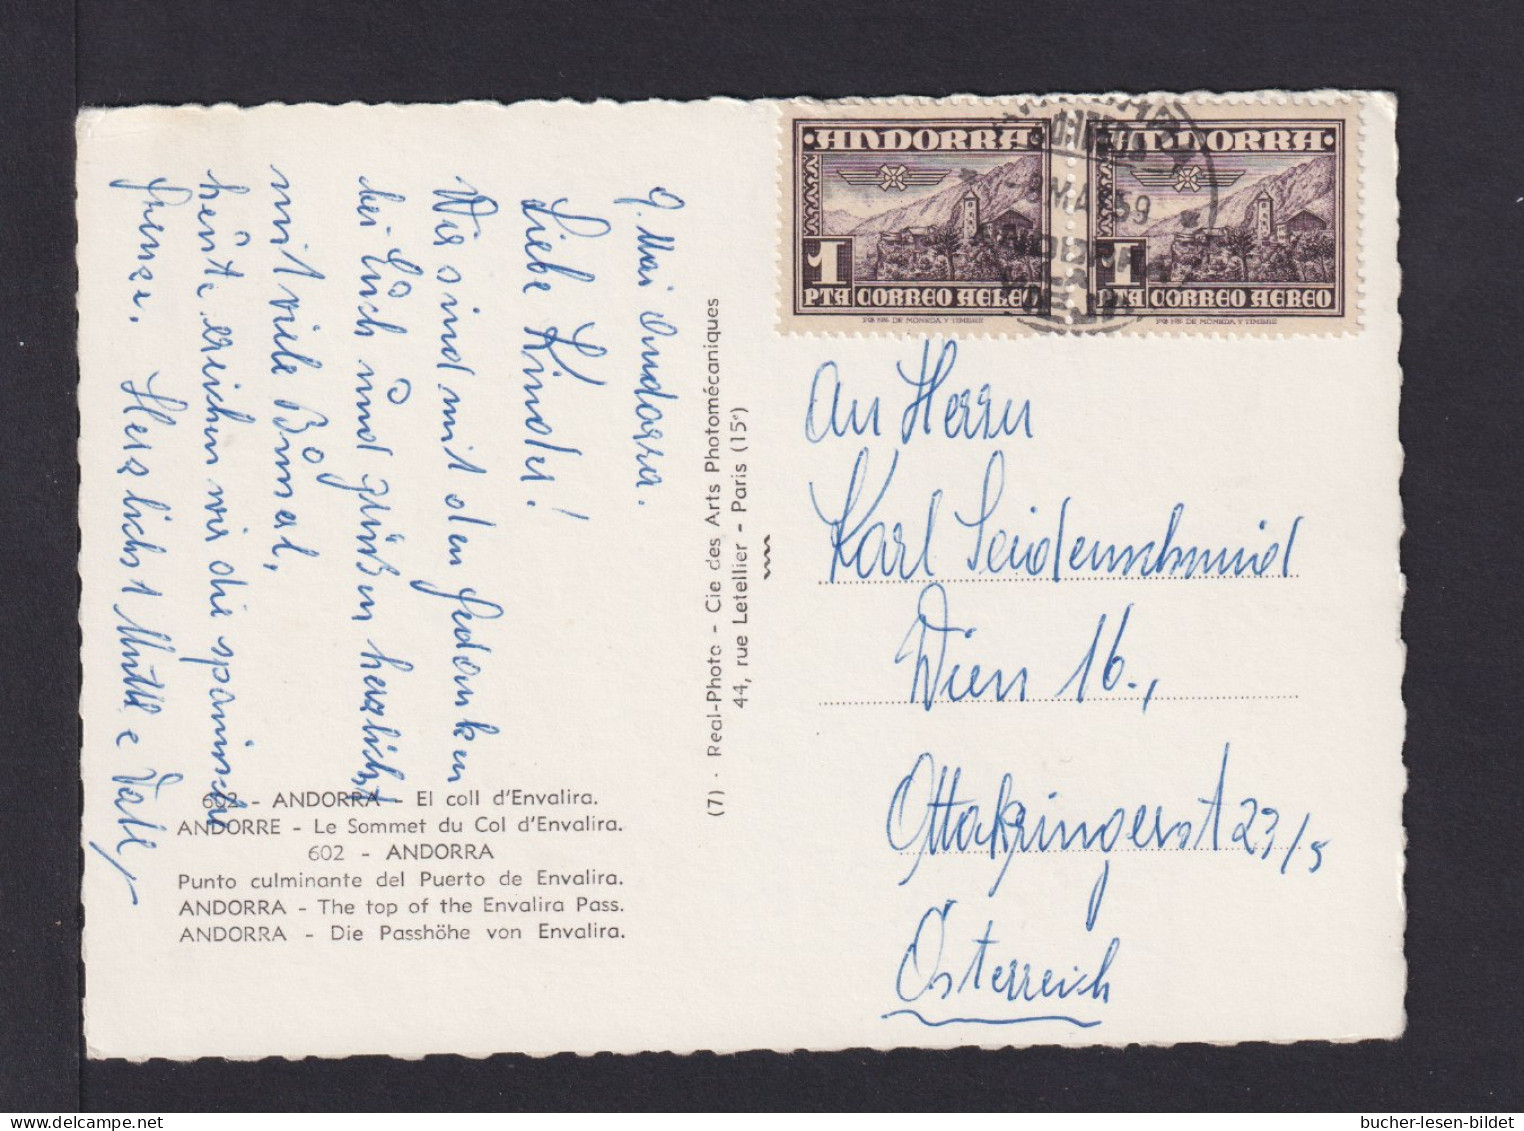 9. Mai Andorra.
Liebe Kinder!
Wir sind mit den Gedanken
bei Euch und grüßen herzlichst
mit viele Bömal,
heute erreichen wir die spanische
Grenze. Herzlichst Mutti e Vati
602 - ANDORRA - El coll d'Envalira.
ANDORRE - Le Sommet du Col d'Envalira.
602 - ANDORRA
Punto culminante del Puerto de Envalira.
ANDORRA - The top of the Envalira Pass.
ANDORRA - Die Passhöhe von Envalira.
(7) - Real-Photo - Cie des Arts Photomécaniques
44, rue Letellier - Paris (15e)
ANDORRA
1
PTA CORREO AEREO
FCA. NAL. DE MONEDA Y TIMBRE
ANDORRA
1
PTA CORREO AEREO
FCA. NAL. DE MONEDA Y TIMBRE
MAY 59
An Herrn
Karl Seidenschmid
Wien 16.,
Ottakringerst 23/5
Österreich
bucher-lesen-bildet